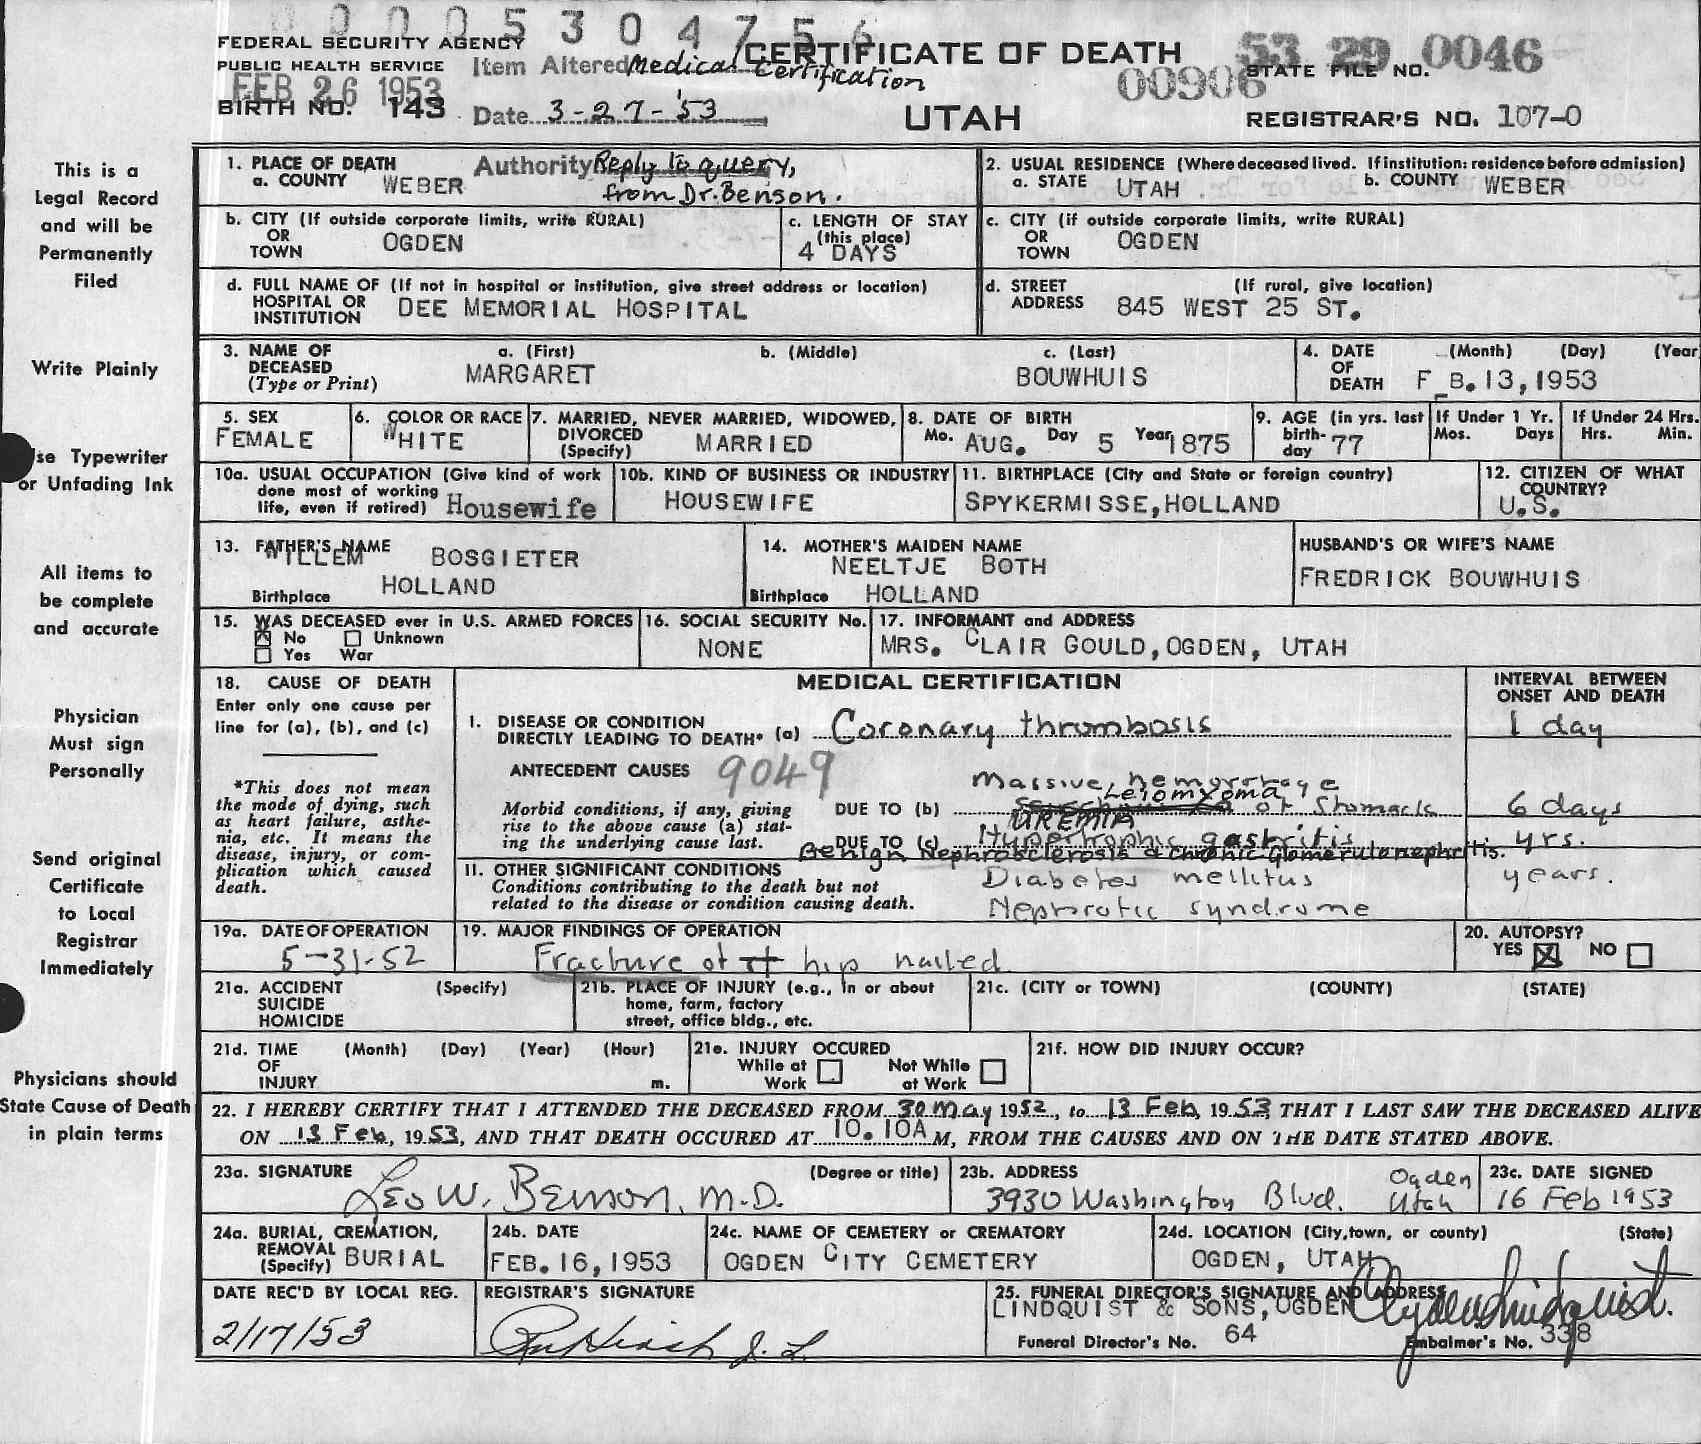 00005304756
FEDERAL SECURITY AGENCY
PUBLIC HEALTH SERVICE
FEB 26 1953
BIRTH NO. 143
Item Altered Medical Certification
Date 3-27-'53
Authority Reply to query, from Dr. Benson.
CERTIFICATE OF DEATH
UTAH
53 29 0046
00906
STATE FILE NO.
REGISTRAR'S NO. 107-0
This is a
Legal Record
and will be
Permanently
Filed
Write Plainly
se Typewriter
or Unfading Ink
All items to
be complete
and accurate
Physician
Must sign
Personally
Send original
Certificate
to Local
Registrar
Immediately
Physicians should
State Cause of Death
in plain terms
1. PLACE OF DEATH
a. COUNTY WEBER
2. USUAL RESIDENCE (Where deceased lived. If institution: residence before admission)
a. STATE UTAH b. COUNTY WEBER
b. CITY (If outside corporate limits, write RURAL)
OR
TOWN OGDEN
c. LENGTH OF STAY
(this place)
4 DAYS
c. CITY (if outside corporate limits, write RURAL)
OR
TOWN OGDEN
d. FULL NAME OF (If not in hospital or institution, give street address or location)
HOSPITAL OR
INSTITUTION DEE MEMORIAL HOSPITAL
d. STREET (If rural, give location)
ADDRESS 845 WEST 25 ST.
3. NAME OF
DECEASED
(Type or Print)
a. (First) b. (Middle) c. (Last)
MARGARET BOUWHUIS
4. DATE (Month) (Day) (Year
OF
DEATH F B. 13, 1953
5. SEX
FEMALE
6. COLOR OR RACE
WHITE
7. MARRIED, NEVER MARRIED, WIDOWED,
DIVORCED
(Specify) MARRIED
8. DATE OF BIRTH
Mo. AUG. Day 5 Year 1875
9. AGE (in yrs. last
birth-
day 77
If Under 1 Yr.
Mos. Days
If Under 24 Hrs.
Hrs. Min.
10a. USUAL OCCUPATION (Give kind of work
done most of working
life, even if retired) Housewife
10b. KIND OF BUSINESS OR INDUSTRY
HOUSEWIFE
11. BIRTHPLACE (City and State or foreign country)
SPYKERMISSE, HOLLAND
12. CITIZEN OF WHAT
COUNTRY?
U.S.
13. FATHER'S NAME
WILLEM BOSGIETER
Birthplace HOLLAND
14. MOTHER'S MAIDEN NAME
NEELTJE BOTH
Birthplace HOLLAND
HUSBAND'S OR WIFE'S NAME
FREDRICK BOUWHUIS
15. WAS DECEASED ever in U.S. ARMED FORCES
No Unknown
Yes War
16. SOCIAL SECURITY No.
NONE
17. INFORMANT and ADDRESS
MRS. CLAIR GOULD, OGDEN, UTAH
18. CAUSE OF DEATH
Enter only one cause per
line for (a), (b), and (c)
*This does not mean
the mode of dying, such
as heart failure, asthe-
nia, etc. It means the
disease, injury, or com-
plication which caused
death.
MEDICAL CERTIFICATION
INTERVAL BETWEEN
ONSET AND DEATH
I. DISEASE OR CONDITION
DIRECTLY LEADING TO DEATH* (a) Coronary thrombosis 1 day
ANTECEDENT CAUSES 9049
Morbid conditions, if any, giving
rise to the above cause (a) stat-
ing the underlying cause last.
Massive hemorrhage
Leiomyoma
DUE TO (b) of Stomach 6 days
UREMIA
DUE TO (c) Hypertrophic gastritis yrs.
Benign Nephrosclerosis & chronic Glomerulonephritis.
II. OTHER SIGNIFICANT CONDITIONS
Conditions contributing to the death but not
related to the disease or condition causing death.
Diabetes mellitus years.
Nephrotic syndrome
19a. DATE OF OPERATION
5-31-52
19. MAJOR FINDINGS OF OPERATION
Fracture of rt hip nailed
20. AUTOPSY?
YES NO
21a. ACCIDENT (Specify)
SUICIDE
HOMICIDE
21b. PLACE OF INJURY (e.g., in or about
home, farm, factory
street, office bldg., etc.
21c. (CITY or TOWN) (COUNTY) (STATE)
21d. TIME (Month) (Day) (Year) (Hour)
OF
INJURY m.
21e. INJURY OCCURED
While at Not While
Work at Work
21f. HOW DID INJURY OCCUR?
22. I HEREBY CERTIFY THAT I ATTENDED THE DECEASED FROM 30 May 1952, to 13 Feb, 1953, THAT I LAST SAW THE DECEASED ALIVE
ON 13 Feb, 1953, AND THAT DEATH OCCURED AT 10.10A M, FROM THE CAUSES AND ON THE DATE STATED ABOVE.
23a. SIGNATURE (Degree or title)
Leo W. Benson, M.D.
23b. ADDRESS
3930 Washington Blvd. Ogden Utah
23c. DATE SIGNED
16 Feb 1953
24a. BURIAL, CREMATION,
REMOVAL
(Specify) BURIAL
24b. DATE
FEB. 16, 1953
24c. NAME OF CEMETERY or CREMATORY
OGDEN CITY CEMETERY
24d. LOCATION (City, town, or county) (State)
OGDEN, UTAH
DATE REC'D BY LOCAL REG.
2/17/53
REGISTRAR'S SIGNATURE
25. FUNERAL DIRECTOR'S SIGNATURE AND ADDRESS
LINDQUIST & SONS, OGDEN
Funeral Director's No. 64
Embalmer's No. 338